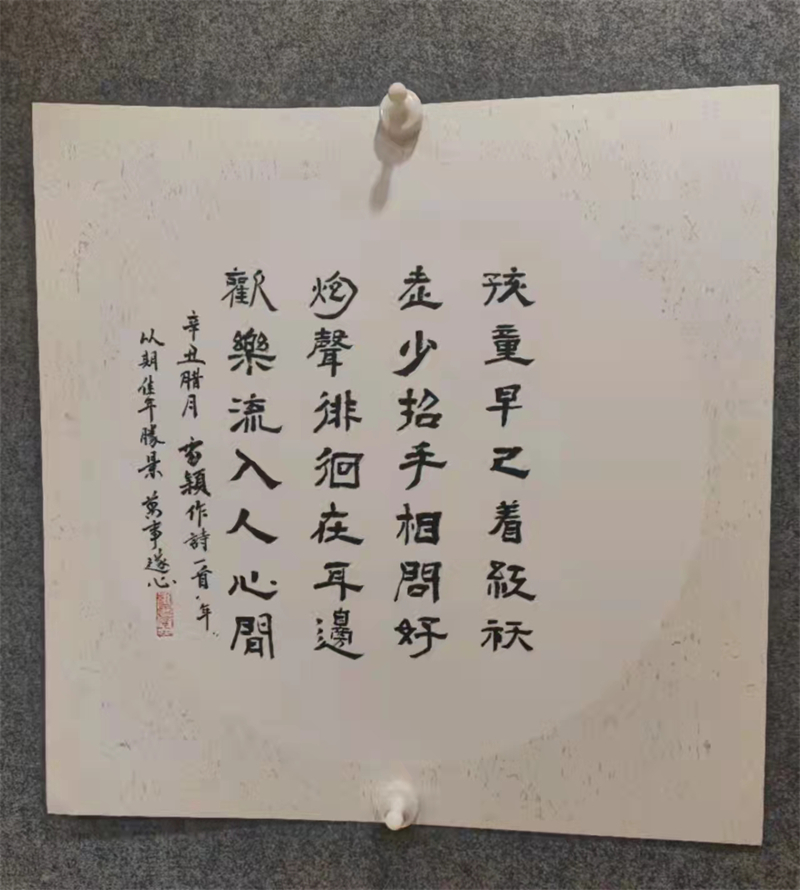 孩童早已着紅袄
老少招手相問好
炮聲徘徊在耳邊
歡樂流入人心間
辛丑腊月 雪穎作詩一首"年"
以期佳年勝景 萬事遂心